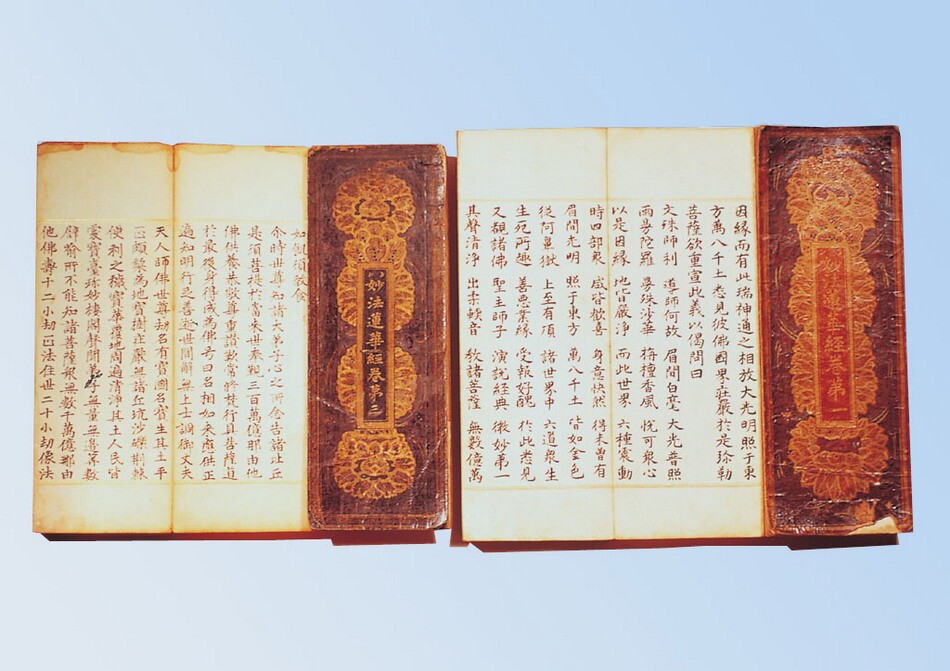 妙法蓮華經卷第一
因緣而有此瑞神通之相放大光明照于東
方萬八千土悉見彼佛國界莊嚴於是弥勒
菩薩欲重宣此義以偈問曰
文殊師利 導師何故 眉間白毫 大光普照
雨曼陀羅 曼殊沙華 栴檀香風 悅可衆心
以是因緣 地皆嚴淨 而此世界 六種震動
時四部衆 咸皆歡喜 身意快然 得未曾有
眉間光明 照于東方 萬八千土 皆如金色
從阿鼻獄 上至有頂 諸世界中 六道衆生
生死所趣 善惡業緣 受報好醜 於此悉見
又覩諸佛 聖主師子 演說經典 微妙第一
其聲清淨 出柔軟音 教諸菩薩 無數億萬
妙法蓮華經卷第三
如飢須教食
尒時世尊知諸大弟子心之所念告諸比丘
是須菩提於當來世奉覲三百萬億那由他
佛供養恭敬尊重讚歎常修梵行具菩薩道
於最後身得成為佛号曰名相如來應供正
遍知明行足善逝世間解無上士調御丈夫
天人師佛世尊劫名有寶國名寶生其土平
正頗梨為地寶樹莊嚴無諸丘坑沙礫荊棘
便利之穢寶華覆地周遍清淨其土人民皆
處寶臺珍妙樓閣聲聞弟子無量無邊筭數
譬喻所不能知諸菩薩衆無數千萬億那由
他佛壽十二小劫正法住世二十小劫像法